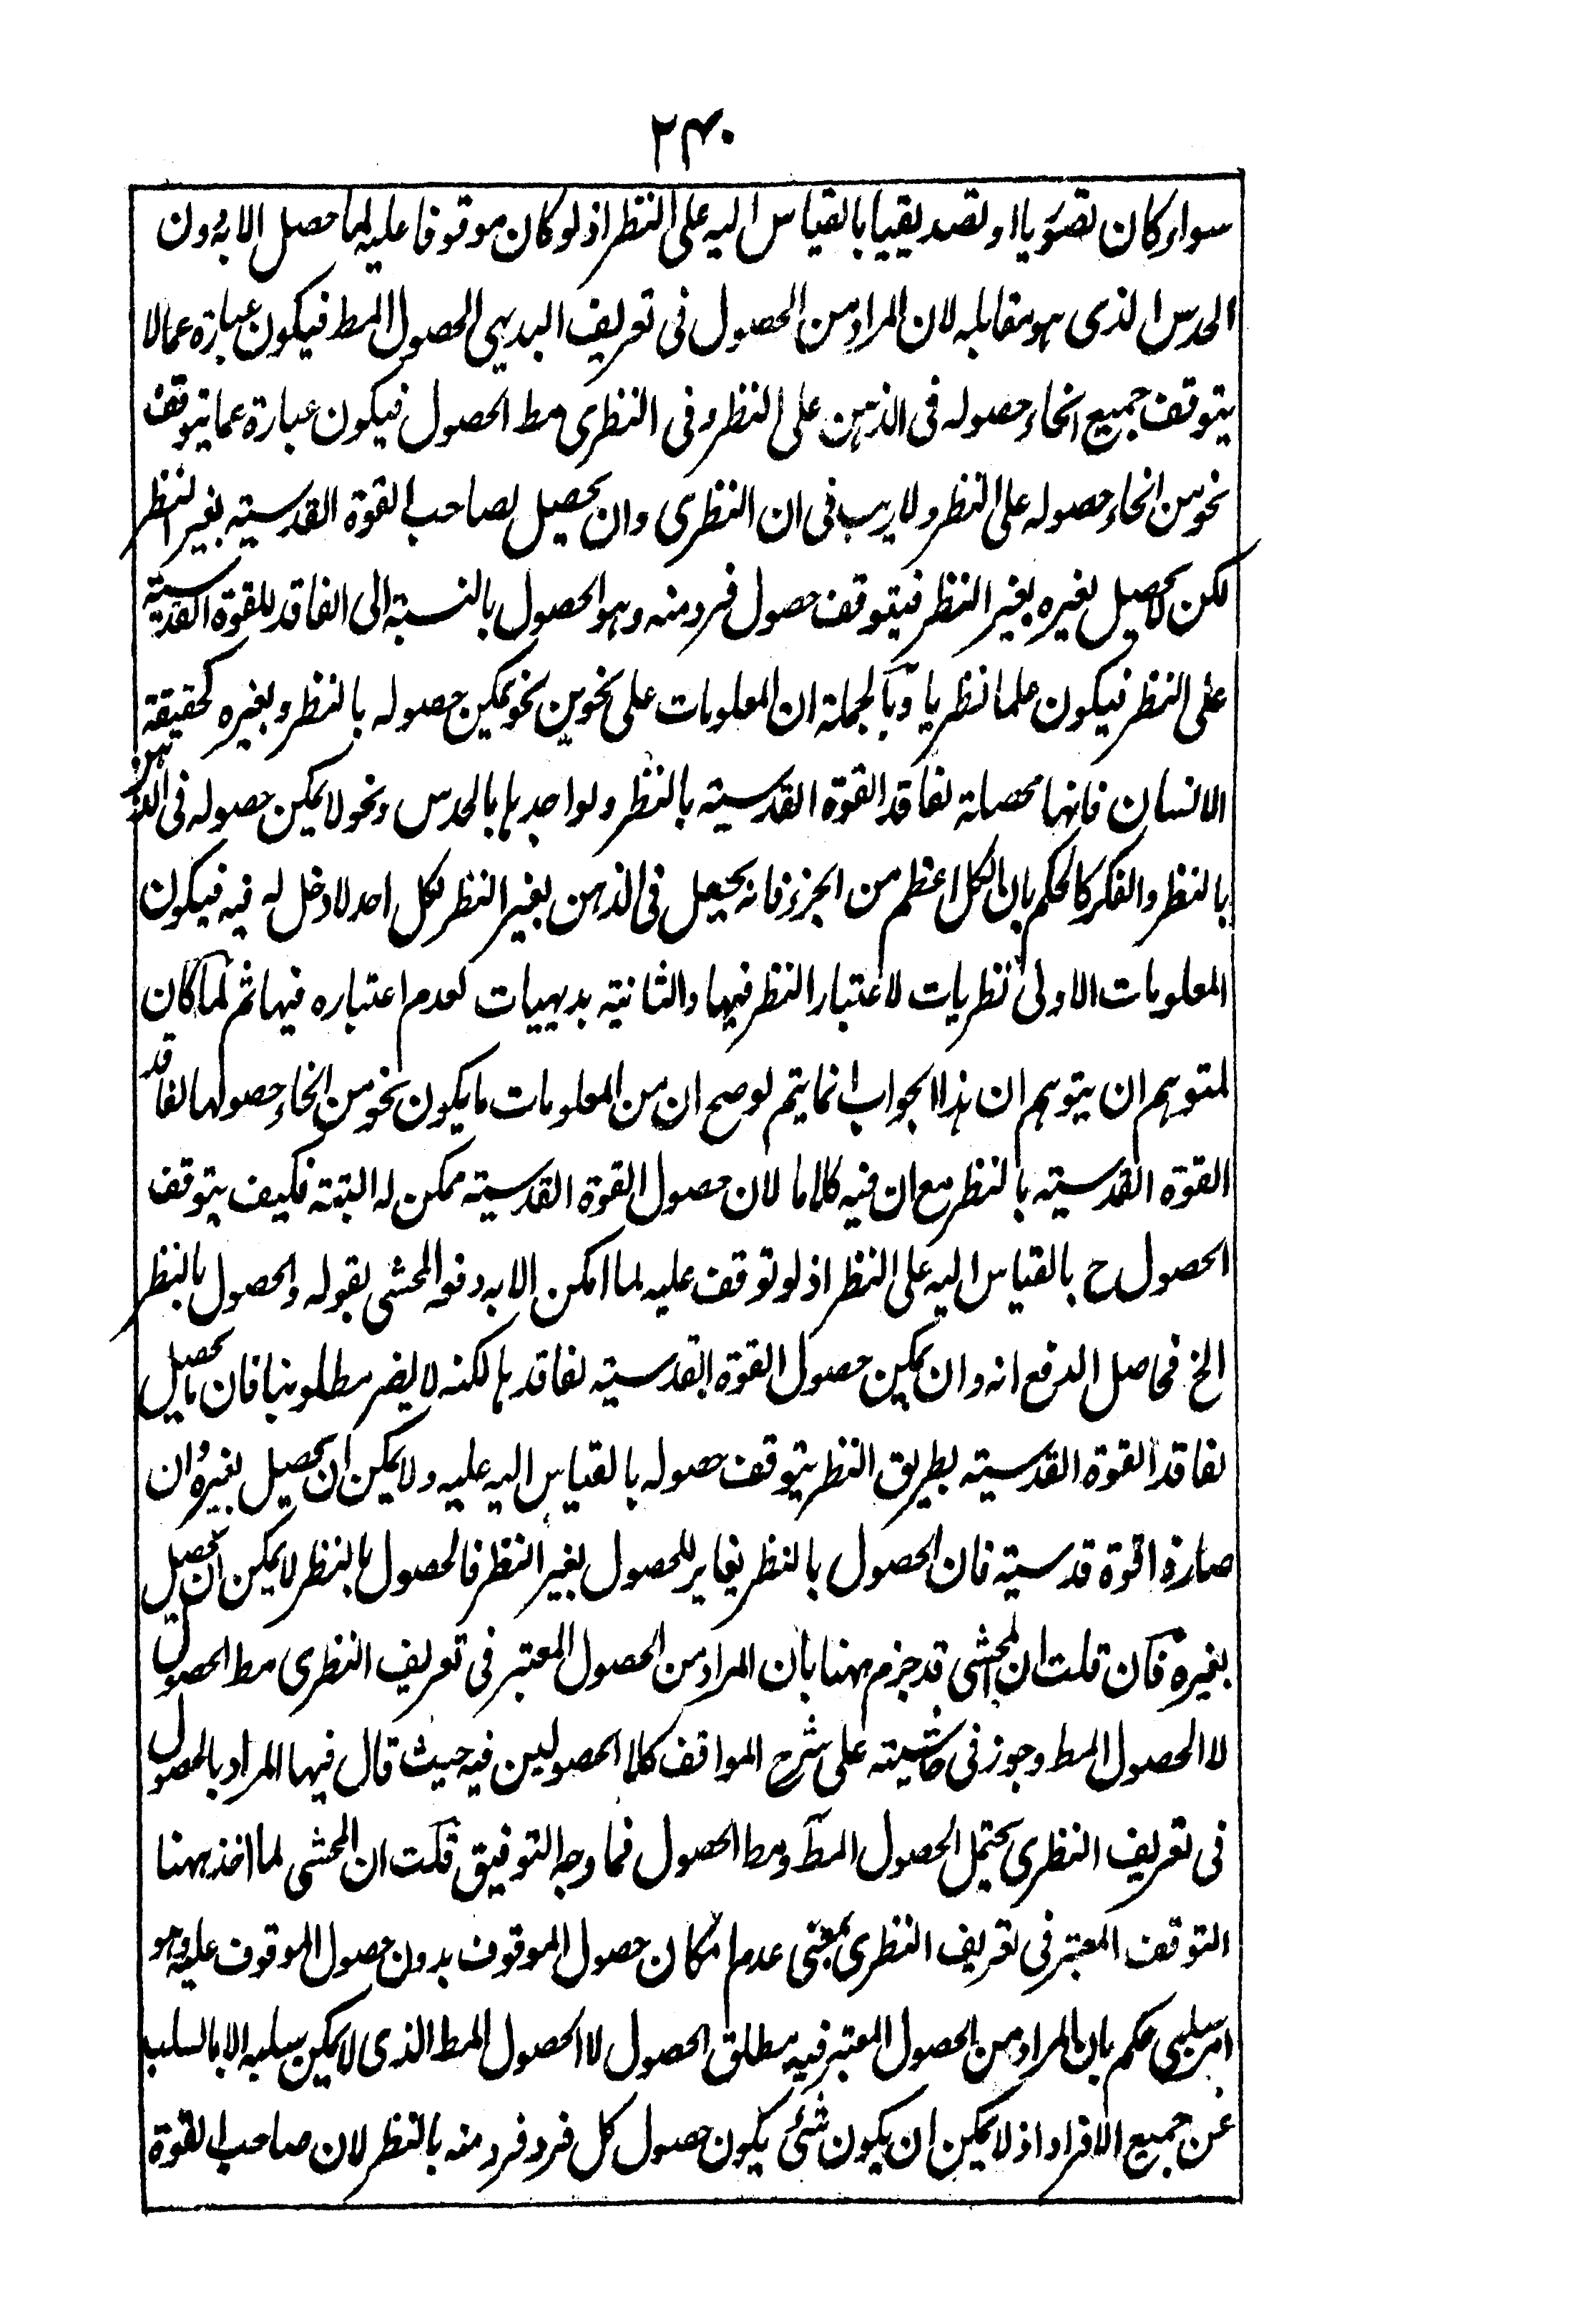 ۲۴۰
سواء كان تصوريا او تصديقيا بالقياس اليه على النظر اذ لو كان موقوفا عليه لما حصل الا به دون
الحدس الذى هو مقابله لان المراد من الحصول فى تعريف البديهى الحصول المط فيكون عبارة عما لا
يتوقف جميع انحاء حصوله فى الذهن على النظر و فى النظرى مط الحصول فيكون عبارة عما يتوقف
نحو من انحاء حصوله على النظر ولا ريب فى ان النظرى وان يحصل لصاحب القوة القدسية بغير النظر
لكن لا يحصل لغيره بغير النظر فيتوقف حصول فرد منه وهو الحصول بالنسبة الى الفاقد للقوة القدسية
على النظر فيكون علما نظريا وبالجملة ان المعلومات على نحوين نحو يمكن حصوله بالنظر وبغيره كحقيقة
الانسان فانها محصلة لفاقد القوة القدسية بالنظر ولواجدها بالحدس ونحو لا يمكن حصوله فى الذهن
بالنظر والفكر كالحكم بان الكل اعظم من الجزء فانه يحصل فى الذهن بغير النظر لكل احد لا دخل له فيه فيكون
المعلومات الاولى نظريات لاعتبار النظر فيها والثانية بديهيات لعدم اعتباره فيها ثم لما كان
لمتوهم ان يتوهم ان هذا الجواب انما يتم لو صح ان من المعلومات ما يكون نحو من انحاء حصولها لفاقد
القوة القدسية بالنظر مع ان فيه كلاما لان حصول القوة القدسية ممكن له البتة فكيف يتوقف
الحصول ح بالقياس اليه على النظر اذ لو توقف عليه لما امكن الا به دفعه المحشى بقوله والحصول بالنظر
الخ فحاصل الدفع انه وان يمكن حصول القوة القدسية لفاقدها لكنه لا يضر مطلوبنا فان ما يحصل
لفاقد القوة القدسية بطريق النظر يتوقف حصوله بالقياس اليه عليه ولا يمكن ان يحصل بغيره وان
صار ذا قوة قدسية فان الحصول بالنظر يغاير للحصول بغير النظر فالحصول بالنظر لا يمكن ان يحصل
بغيره فان قلت ان المحشى قد جزم ههنا بان المراد من الحصول المعتبر فى تعريف النظرى مط الحصول
لا الحصول المط وجوز فى حاشيته على شرح المواقف كلا الحصولين فيه حيث قال فيها المراد بالحصول
فى تعريف النظرى يحتمل الحصول المط ومط الحصول فما وجه التوفيق قلت ان المحشى لما اخذ ههنا
التوقف المعتبر فى تعريف النظرى بمعنى عدم امكان حصول الموقوف بدون حصول الموقوف عليه وهو
امر سلبى حكم بان المراد من الحصول المعتبر فيه مطلق الحصول لا الحصول المط الذى لا يمكن سلبه الا بالسلب
عن جميع الافراد اذ لا يمكن ان يكون شئ يكون حصول كل فرد فرد منه بالنظر لان صاحب القوة